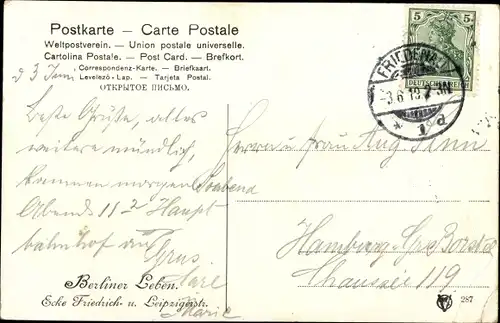 Postkarte – Carte Postale
Weltpostverein. – Union postale universelle.
Cartolina Postale. – Post Card. – Brefkort.
Correspondenz-Karte. – Briefkaart.
Levelező-Lap. – Tarjeta Postal.
ОТКРЫТОЕ ПИСЬМО.
5 5
DEUTSCHES REICH
3.6.
d 3 Juni
Beste Grüße, alles
weitere mündlich,
kommen morgen
Abends 11 2 Haupt
bahnhof an
Grus
Marie
Herrn u Frau Aug
Hamburg
Chaussee 119
Berliner Leben.
Ecke Friedrich- u. Leipzigerstr.
287